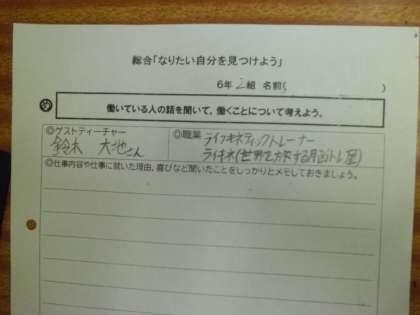 総合「なりたい自分を見つけよう」
6年 2組 名前( )
め 働いている人の話を聞いて、働くことについて考えよう。
◎ゲストティーチャー
鈴木 大地さん
◎職業
ライフキネティックトレーナー
ライキネ(世界を旅する脳トレ屋)
◎仕事内容や仕事に就いた理由、喜びなど聞いたことをしっかりとメモしておきましょう。